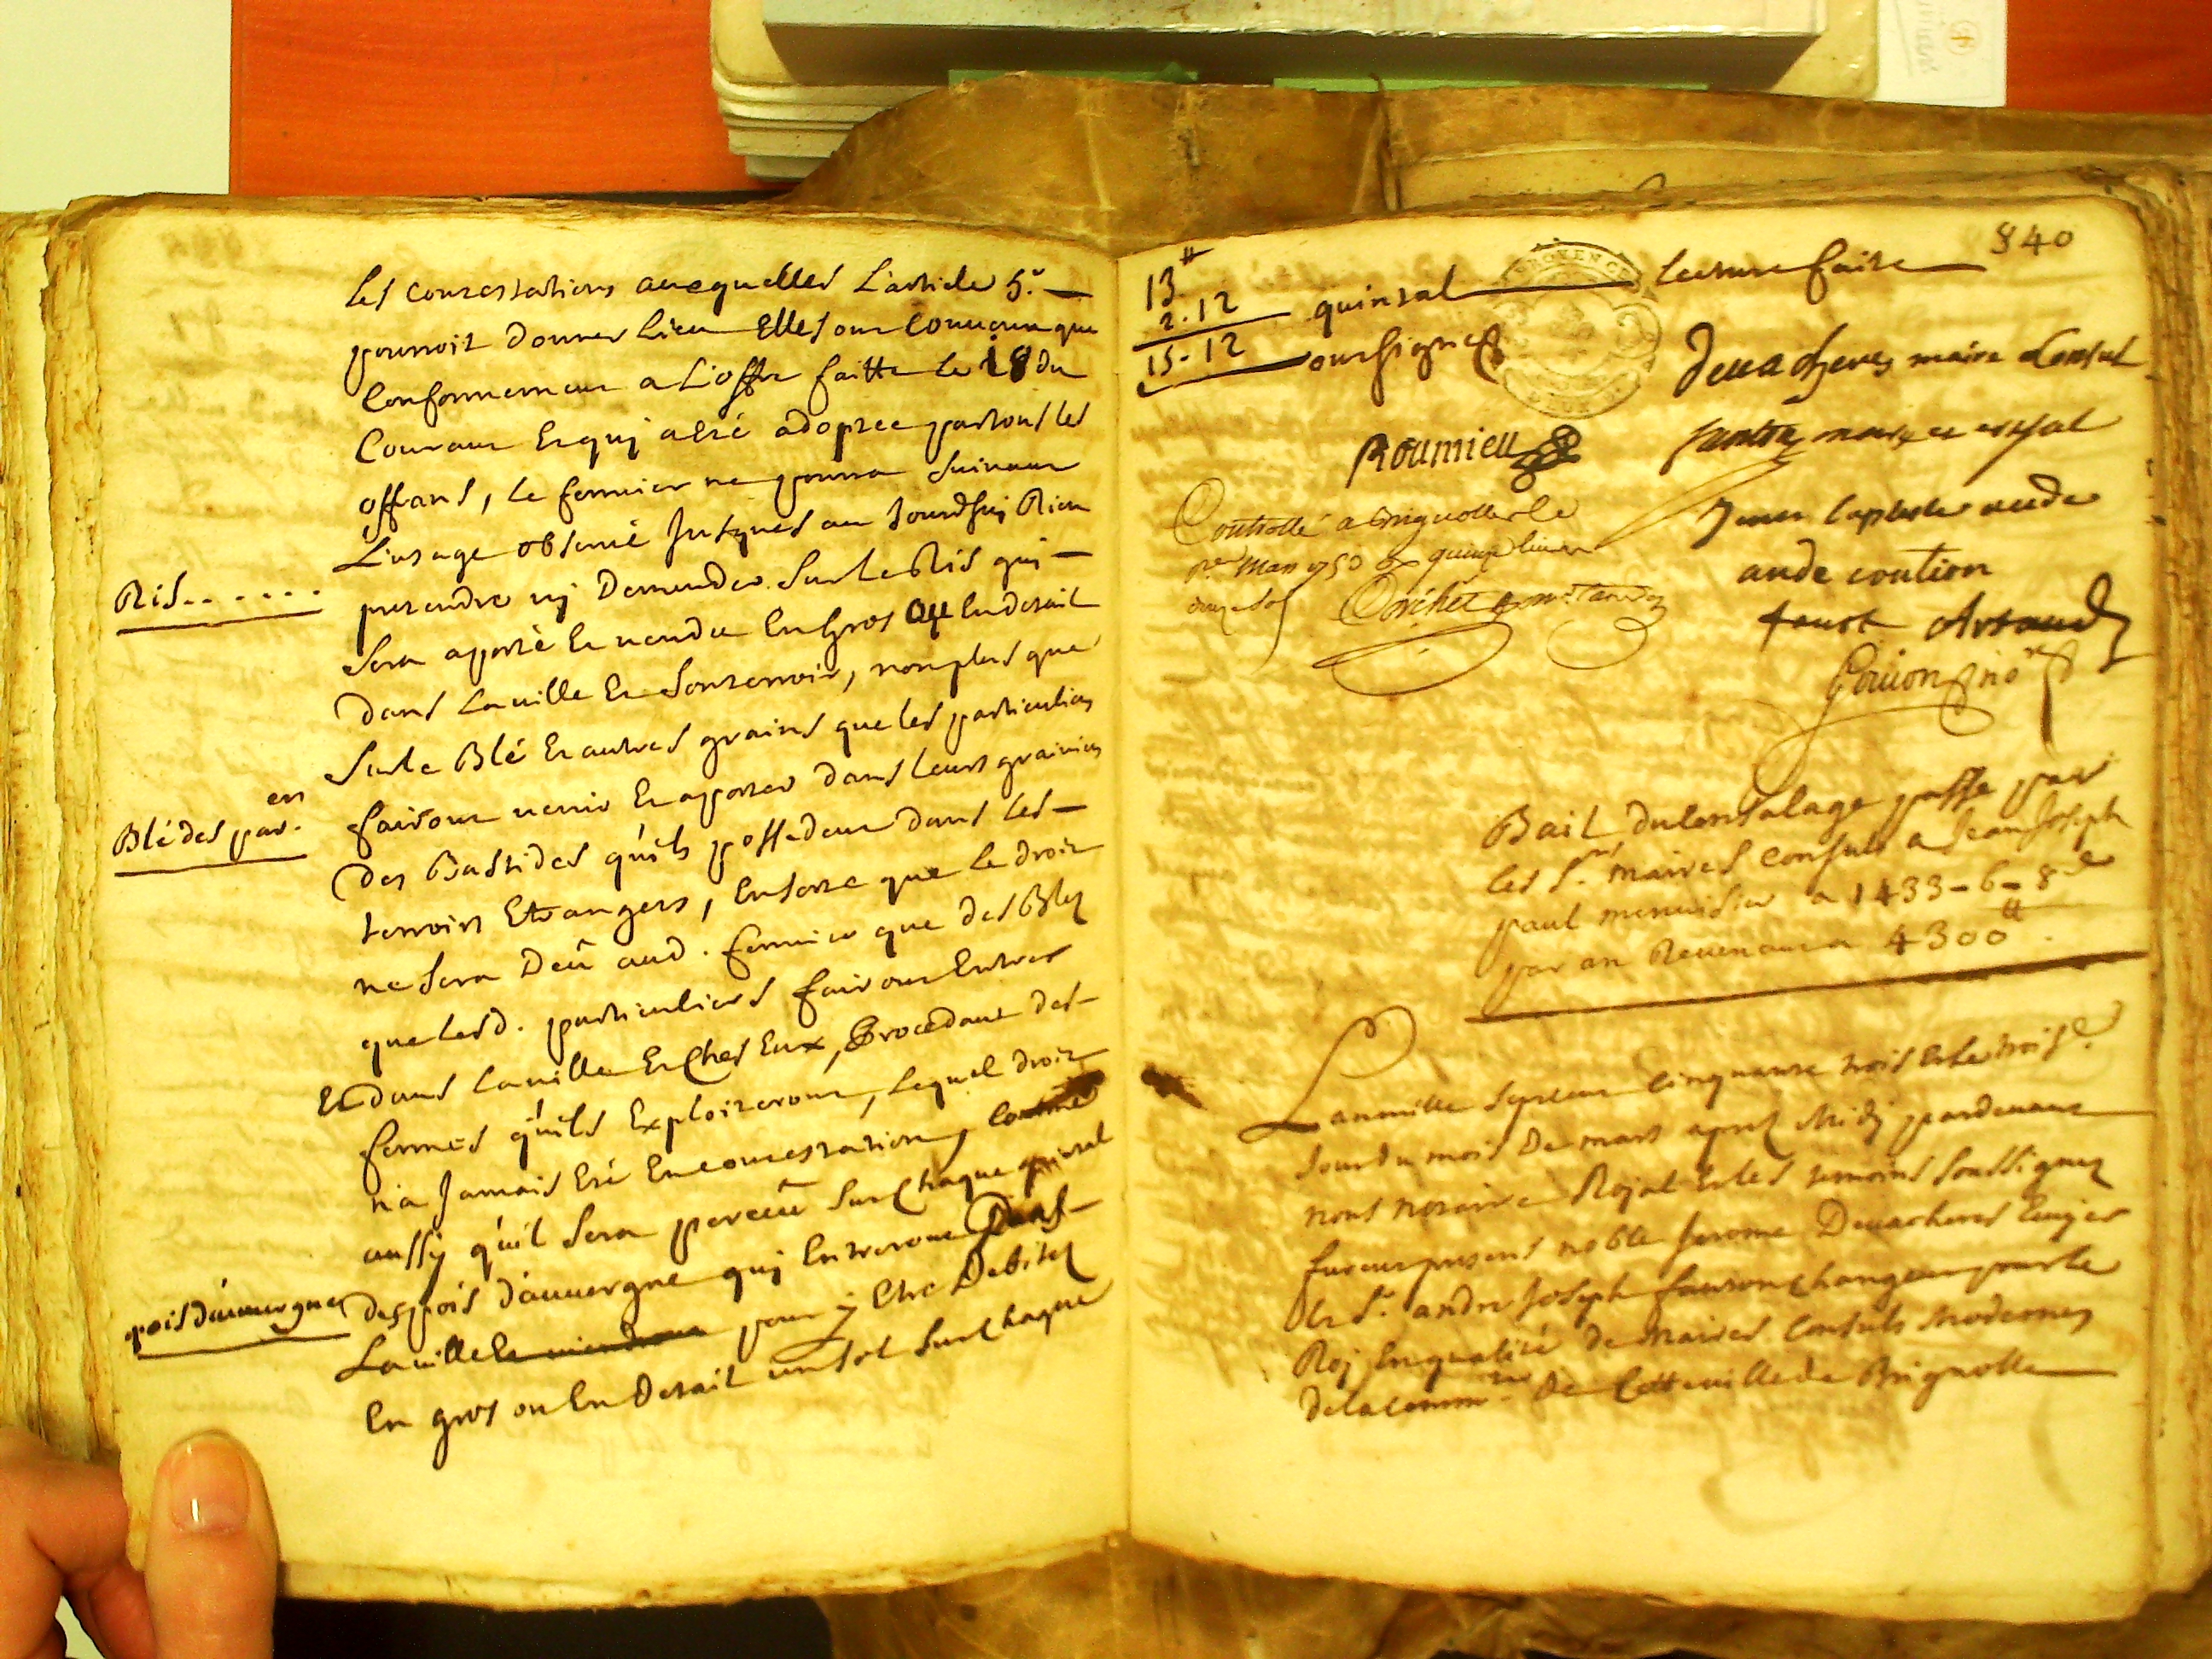 les contestations auxquelles L'article 5.e
pourroit donner lieu Elles ont Convenu que
Conformement a L'offre faitte le 18 du
Courant Et qui a Eté adoptée par tous les
offrans, le fermier ne pourra suivant
L'usage observé Jusques au Jourdhuy Rien
Ris......
pretendre ny Demander sur le Ris qui
sera aporté Et vendu En Gros ou En detail
dans la ville Et son terroir, non plus que
sur le Blé Et autres grains que les particuliers
en
Blé des par.
fairont venir Et aporter dans leurs greniers
des Bastides qu'ils possedent dans les
terroirs Etrangers, En sorte que le droit
ne sera Deû aud. fermier que des Blez
que lesd. particuliers fairont Entrer
Et dans la ville Et Chés Eux, Procedant des
fermes qu'ils Exploiteront, Lequel droit
n'a Jamais Eté En contestation, comme
aussy qu'il sera perceû sur Chaque quintal
pois d'auvergne
des pois d'auvergne qui Entreront Dans
La ville Et pour y Etre Debitez
En gros ou En Detail un sol sur Chaque
840
13 ₶
2.12
15-12
quintal lecture faite
ont signé
Devacheres maire Consul
Roumieu
maire et consul
Controllé a Brignolle le
quinze livres
douze sol
caution
Artaud
Goujon no.re
Bail du lensalage passé par
les S.rs maires Consuls a Jean Joseph
paul menuisier a 1433-6-8 d
par an Revenant a 4300 ₶.
L'an mille sept cent Cinquante trois Et le trois.e
Jour du mois De mars aprez Midy pardevant
nous notaire Royal Et les temoins soussignez
furent presens noble Jerome Devacheres Ecuyer
Et S.r andre Joseph fauton Changeur pour le
Roy En qualité De Maires Consuls Modernes
de la Comm.té De Cette ville de Brignolle